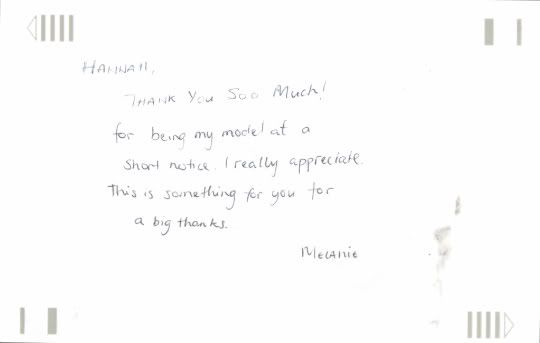 HANNAH,
THANK YOU SOO MUCH!
for being my model at a
short notice. I really appreciate.
This is something for you for
a big thanks.
MELANIE